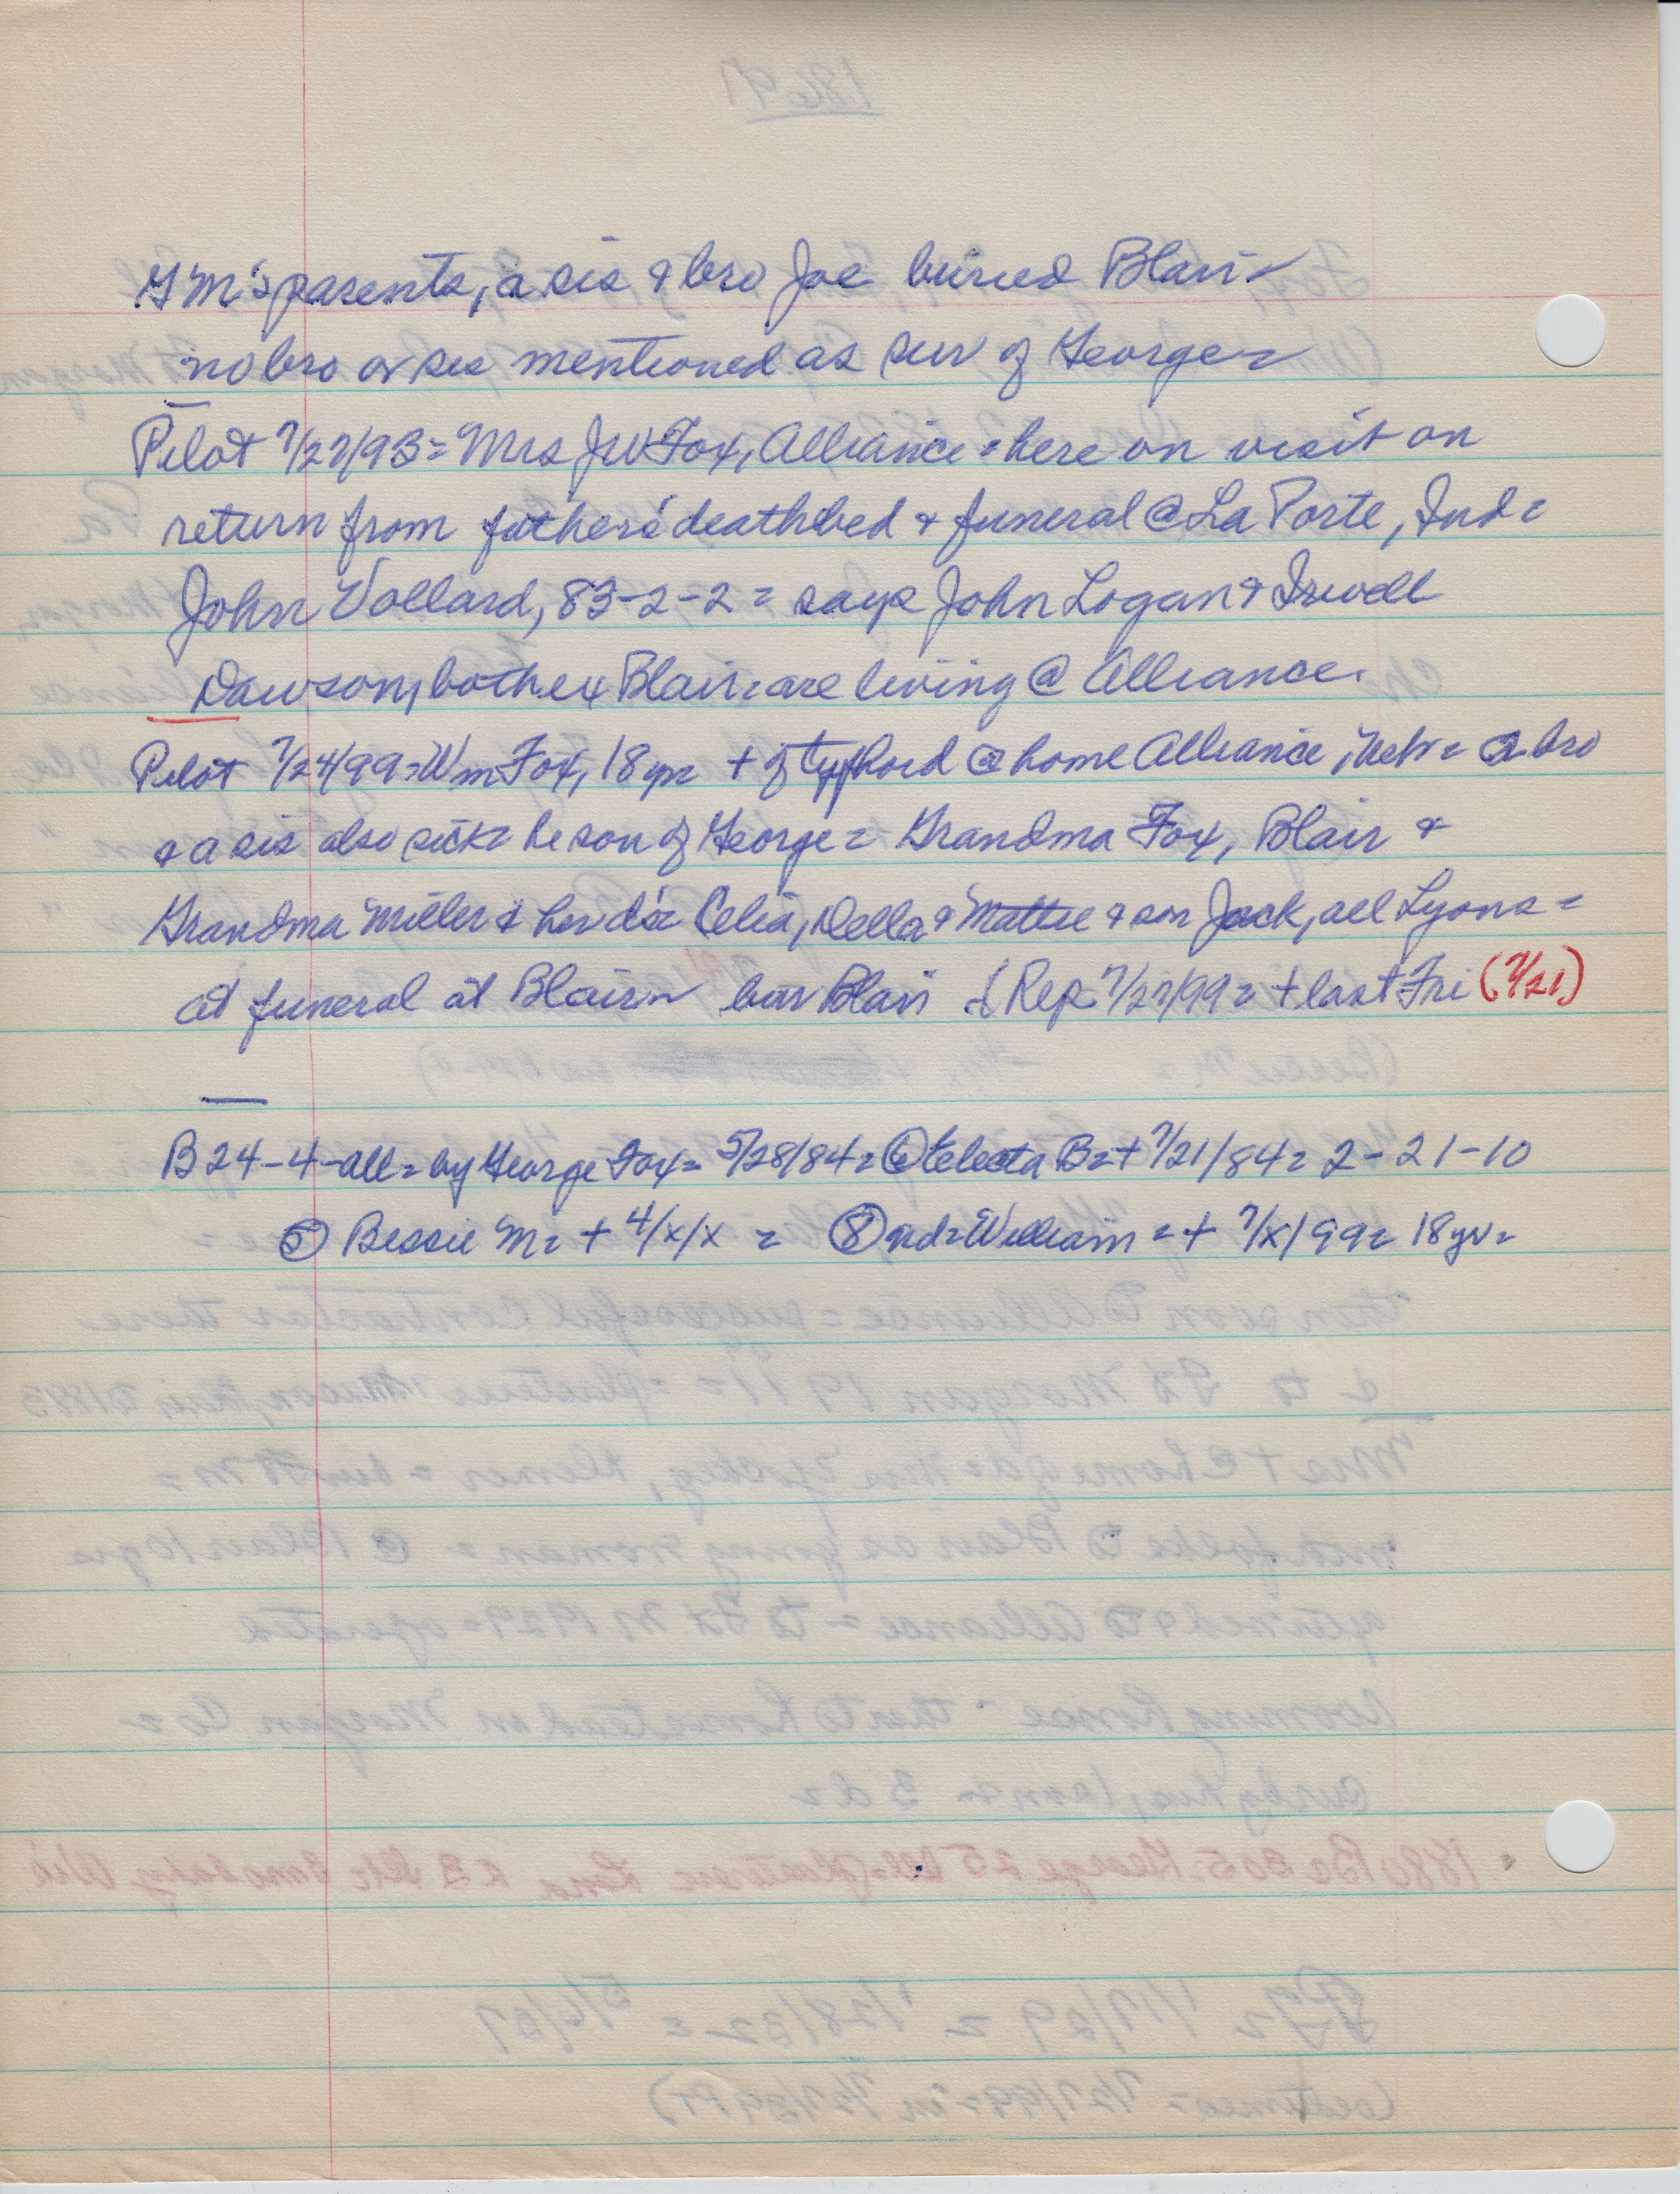 GM's parents, a sis & bro Joe buried Blair =
no bro or sis mentioned as sur of George =
Pilot 7/27/93 = Mrs JW Fox, Alliance = here on visit on
return from father's deathbed & funeral @ La Porte, Ind =
John Vollard, 83-2-2 = says John Logan & Irwell
Dawson, both ex Blair = are living @ Alliance.
Pilot 7/24/99 = Wm Fox, 18 yr = + of typhoid @ home Alliance, Neb = a bro
& a sis also sick = he son of George = Grandma Fox, Blair &
Grandma Miller & her d's = Celia, Della & Mattie & son Jack, all Lyons =
at funeral at Blair = bur Blair (Rep 7/27/99 = + last Fri (7/21)
B 24-4-all = by George Fox = 5/28/84 = ⑥ Electa B = + 7/21/84 = 2-21-10
⑤ Bessie M = + 4/x/x = ⑧ nd = William = + 7/x/99 = 18 yr =